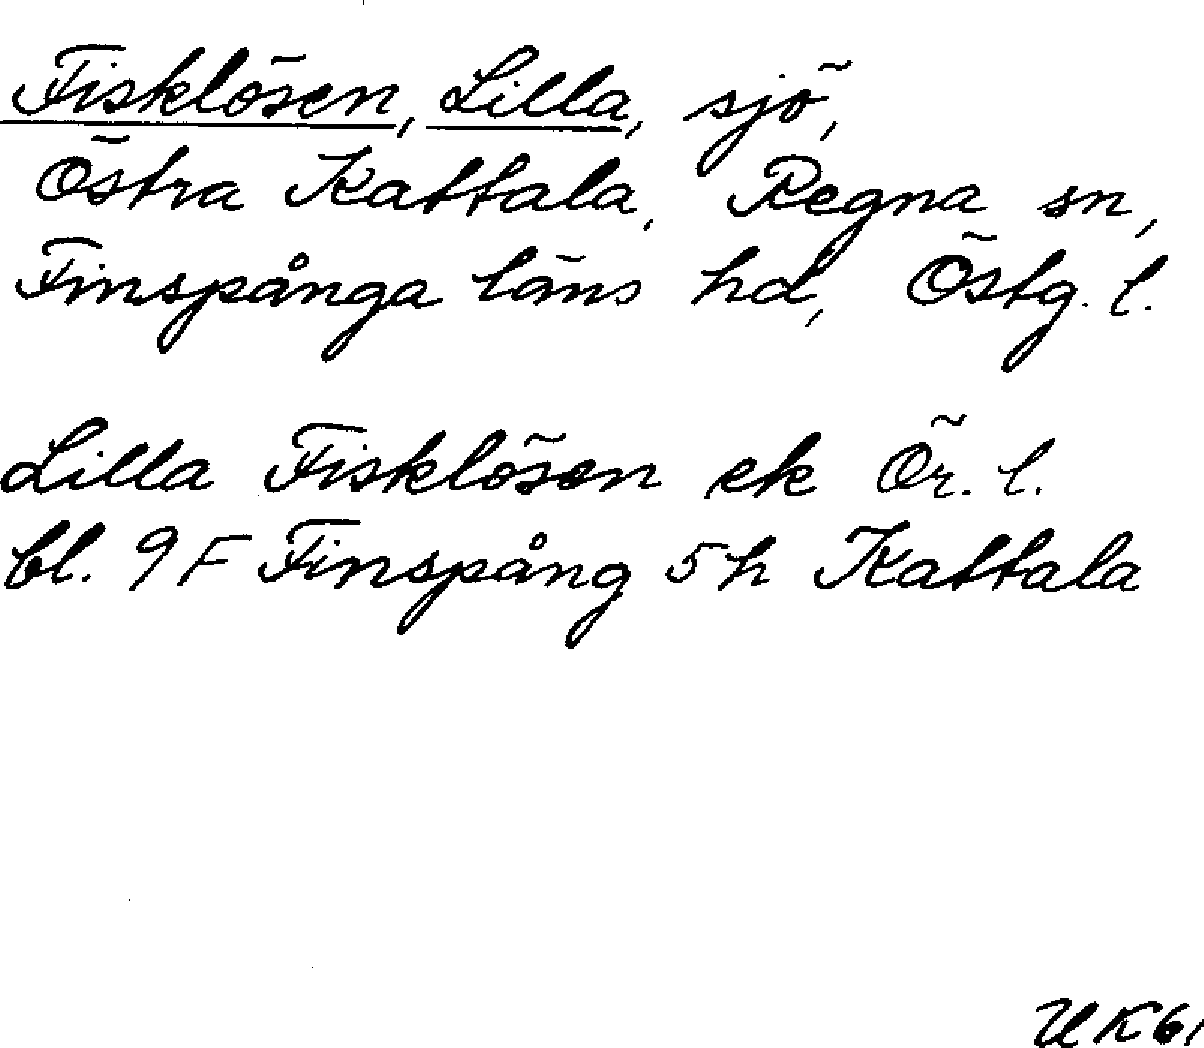 Fisklösen, Lilla, sjö,
Östra Kattala, Regna sn,
Finspånga läns hd, Östg. l.
Lilla Fisklösen ek Ör. l.
bl. 9F Finspång 5h Kattala
UK61